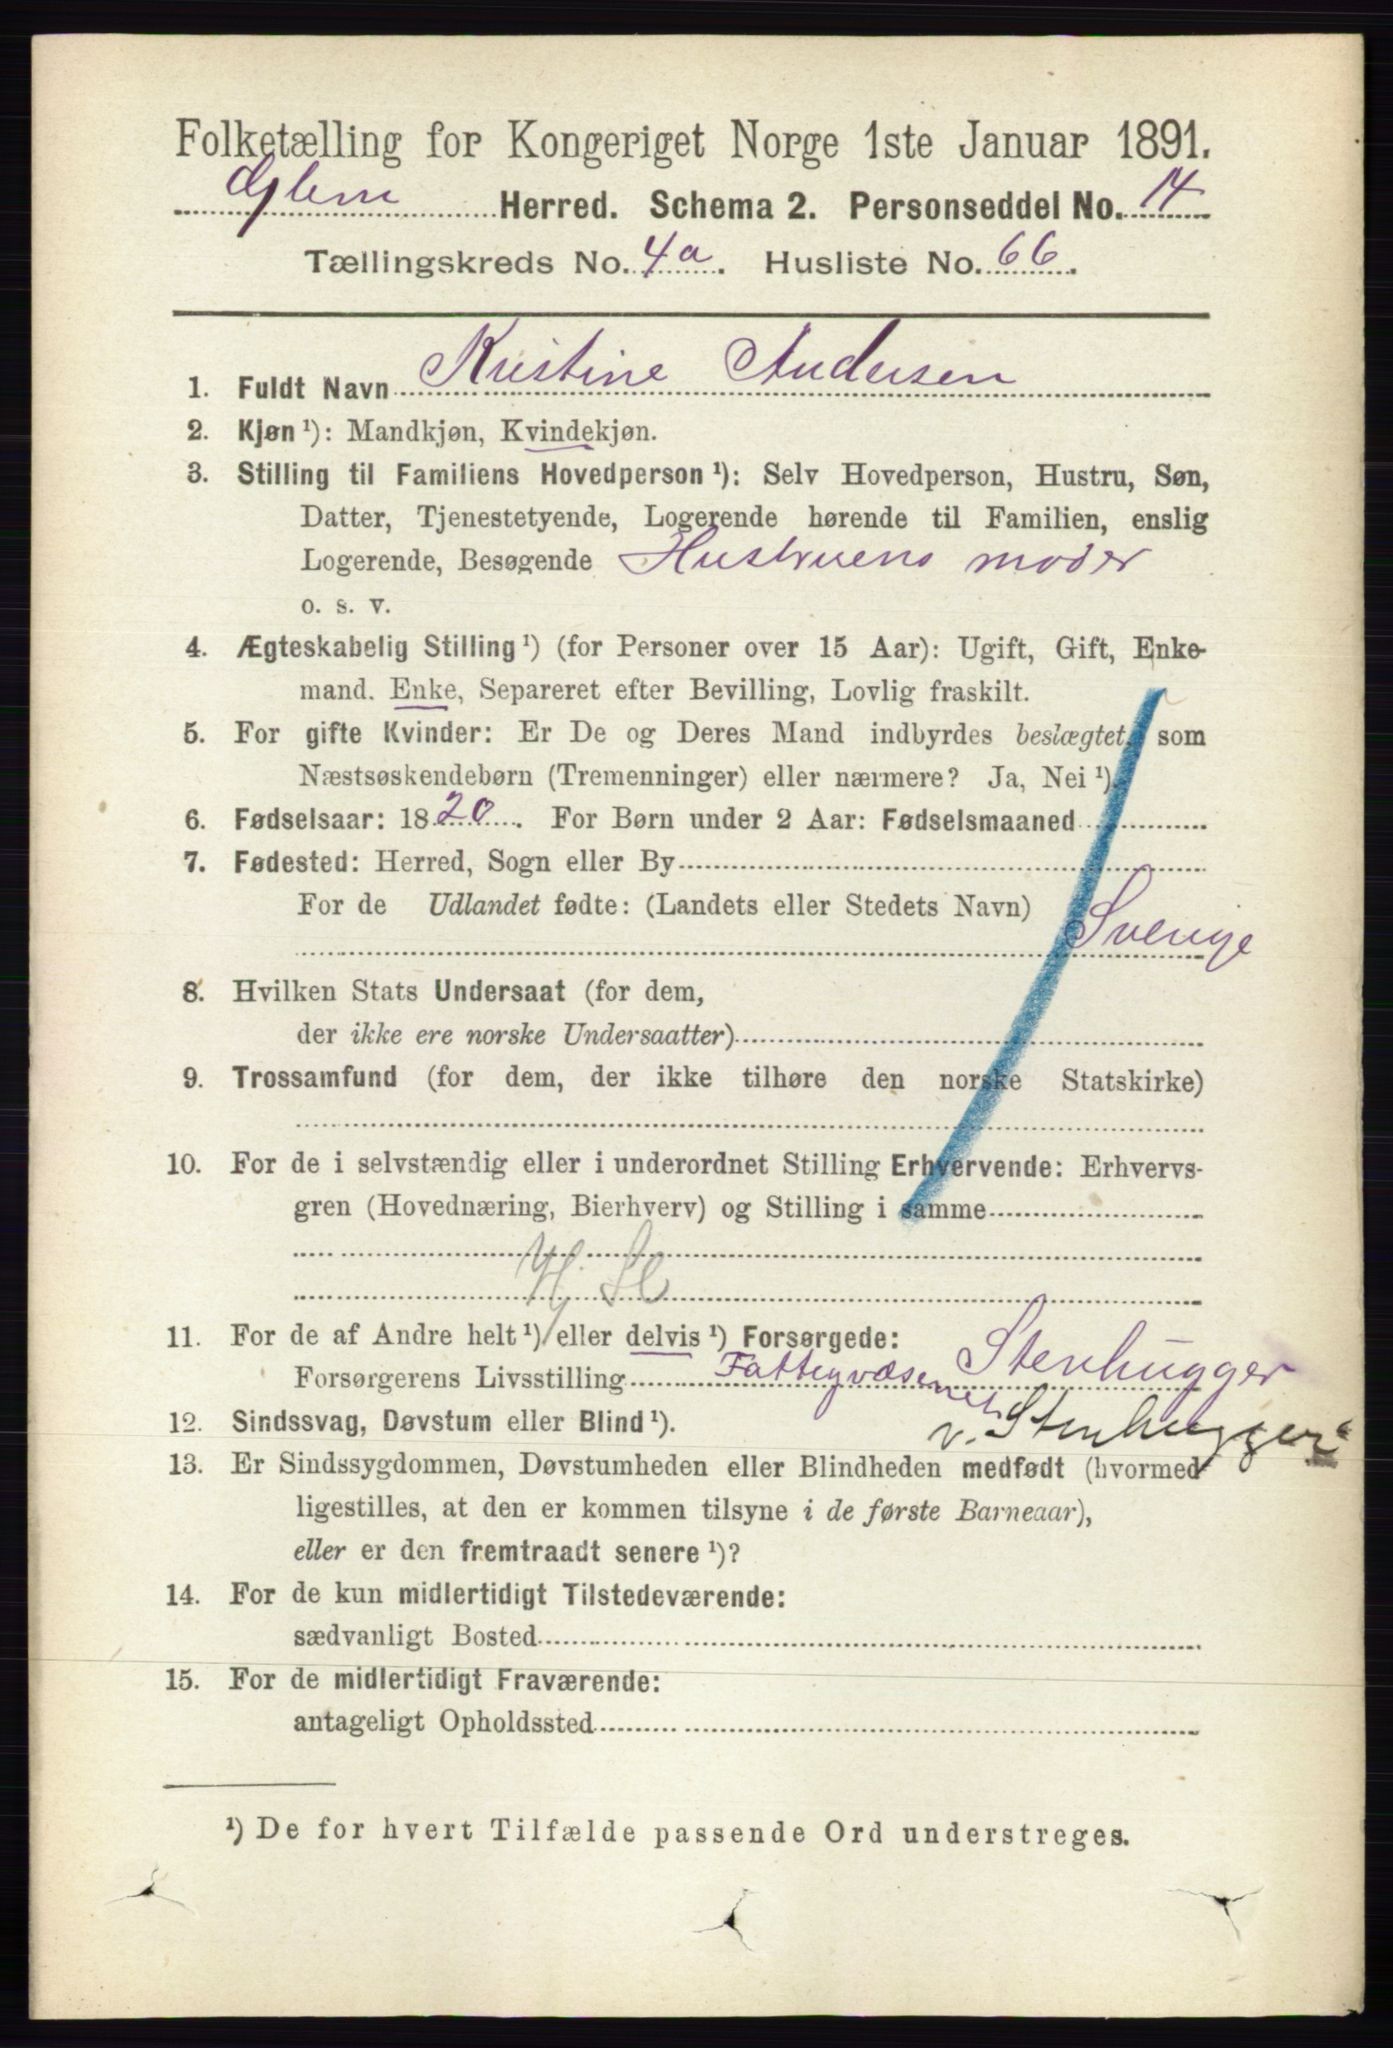 Folketælling for Kongeriget Norge 1ste Januar 1891.
Glemmen Herred. Schema 2. Personseddel No. 14
Tællingskreds No. 4a. Husliste No. 66.
1. Fuldt Navn Kristine Andersen
2. Kjøn ¹): Mandkjøn, Kvindekjøn.
3. Stilling til Familiens Hovedperson ¹): Selv Hovedperson, Hustru, Søn,
Datter, Tjenestetyende, Logerende hørende til Familien, enslig
Logerende, Besøgende Hustruens moder
o. s. v.
4. Ægteskabelig Stilling ¹) (for Personer over 15 Aar): Ugift, Gift, Enke-
mand. Enke, Separeret efter Bevilling, Lovlig fraskilt.
5. For gifte Kvinder: Er De og Deres Mand indbyrdes beslægtet som
Næstsøskendebørn (Tremenninger) eller nærmere? Ja, Nei ¹).
6. Fødselsaar: 1820. For Børn under 2 Aar: Fødselsmaaned
7. Fødested: Herred, Sogn eller By
For de Udlandet fødte: (Landets eller Stedets Navn) Sverige
8. Hvilken Stats Undersaat (for dem,
der ikke ere norske Undersaatter)
9. Trossamfund (for dem, der ikke tilhøre den norske Statskirke)
10. For de i selvstændig eller i underordnet Stilling Erhvervende: Erhvervs-
gren (Hovednæring, Bierhverv) og Stilling i samme
11. For de af Andre helt ¹) eller delvis ¹) Forsørgede:
Forsørgerens Livsstilling Fattigvæsenet Stenhugger
v. Stenhugger
12. Sindssvag, Døvstum eller Blind ¹).
13. Er Sindssygdommen, Døvstumheden eller Blindheden medfødt (hvormed
ligestilles, at den er kommen tilsyne i de første Barneaar),
eller er den fremtraadt senere ¹)?
14. For de kun midlertidigt Tilstedeværende:
sædvanligt Bosted
15. For de midlertidigt Fraværende:
antageligt Opholdssted
¹) De for hvert Tilfælde passende Ord understreges.